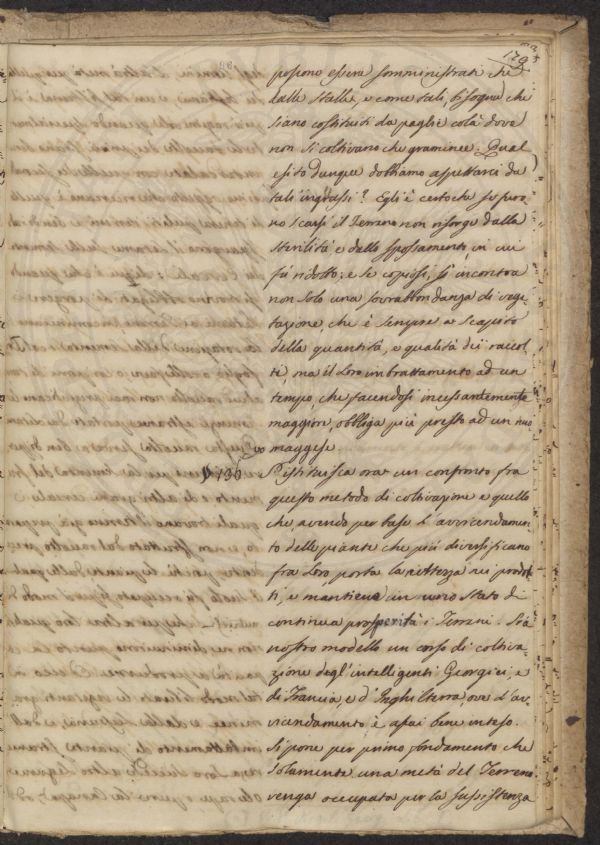 179
possono essere somministrati che
dalle stalle, e come tali, bisogna che
siano costituiti da paglie colà dove
non si coltivano che graminee. Qual
esito dunque dobbiamo aspettarci da
tali ingrassi? Egli è certo che se furo-
no scarsi il Terreno non risorge dalla
sterilità e dallo spossamento in cui
fù ridotto; e se copiosi, s'incontra
non solo una sovrabbondanza di vege-
tazione, che è sempre a scapito
della quantità, e qualità dei raccol-
ti, ma il Loro imbrattamento ad un
tempo, che facendosi incessantemente
maggiore, obbliga più presto ad un nuo
vo maggese
§ 136 Istituisca ora un confronto fra
questo metodo di coltivazione e quello
che avendo per base l'avvicendamen-
to delle piante che più diversificano
fra Loro, porta la nettezza nei prodot-
ti, e mantiene in uno Stato di
continua prosperità i Terreni. Sia
nostro modello un corso di coltiva-
zione degl'intelligenti Georgici, e
di Francia, e d'Inghilterra, ove l'av-
vicendamento è assai bene inteso.
Si pone per primo fondamento che
Solamente una metà del Terreno
venga occupata per la sussistenza